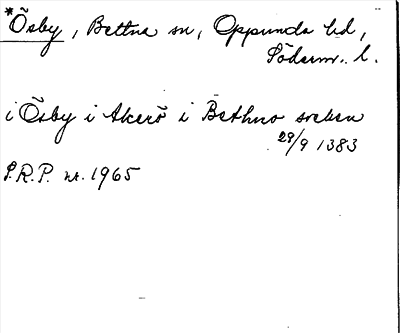 *Ösby, Bettna sn, Oppunda hd,
Söderm. l.
i Ösby i Akerö i Bethno sokn
29/9 1383
S.R.P. nr. 1965